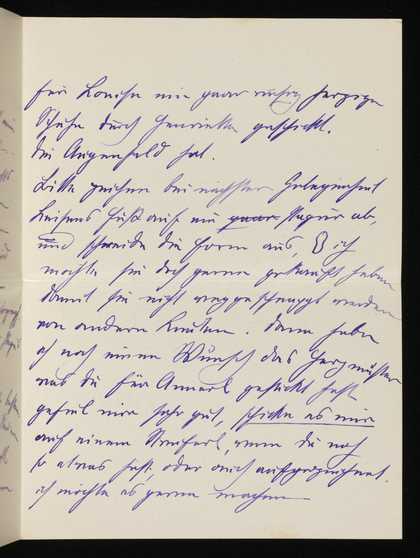 für Louise ein paar ruhig herzige
Schuhe durch Henriette geschickt.
die Augenfeld hat.
Bitte zeichne bei nächster Gelegenheit
Luisens Fuß auf ein paar Papier ab,
und schneide die Form aus, ich
möchte sie doch gerne gekauft haben
damit sie nicht weggeschnappt werden
von anderen Leuten. Dann habe
ich noch einen Wunsch das Herzmuster
was du für Annerl gestickt hast
gefiel mir sehr gut, schicke es mir
auf einem Streiferl, wenn du noch
so etwas hast, oder auch aufgezeichnet.
ich möchte es gerne machen